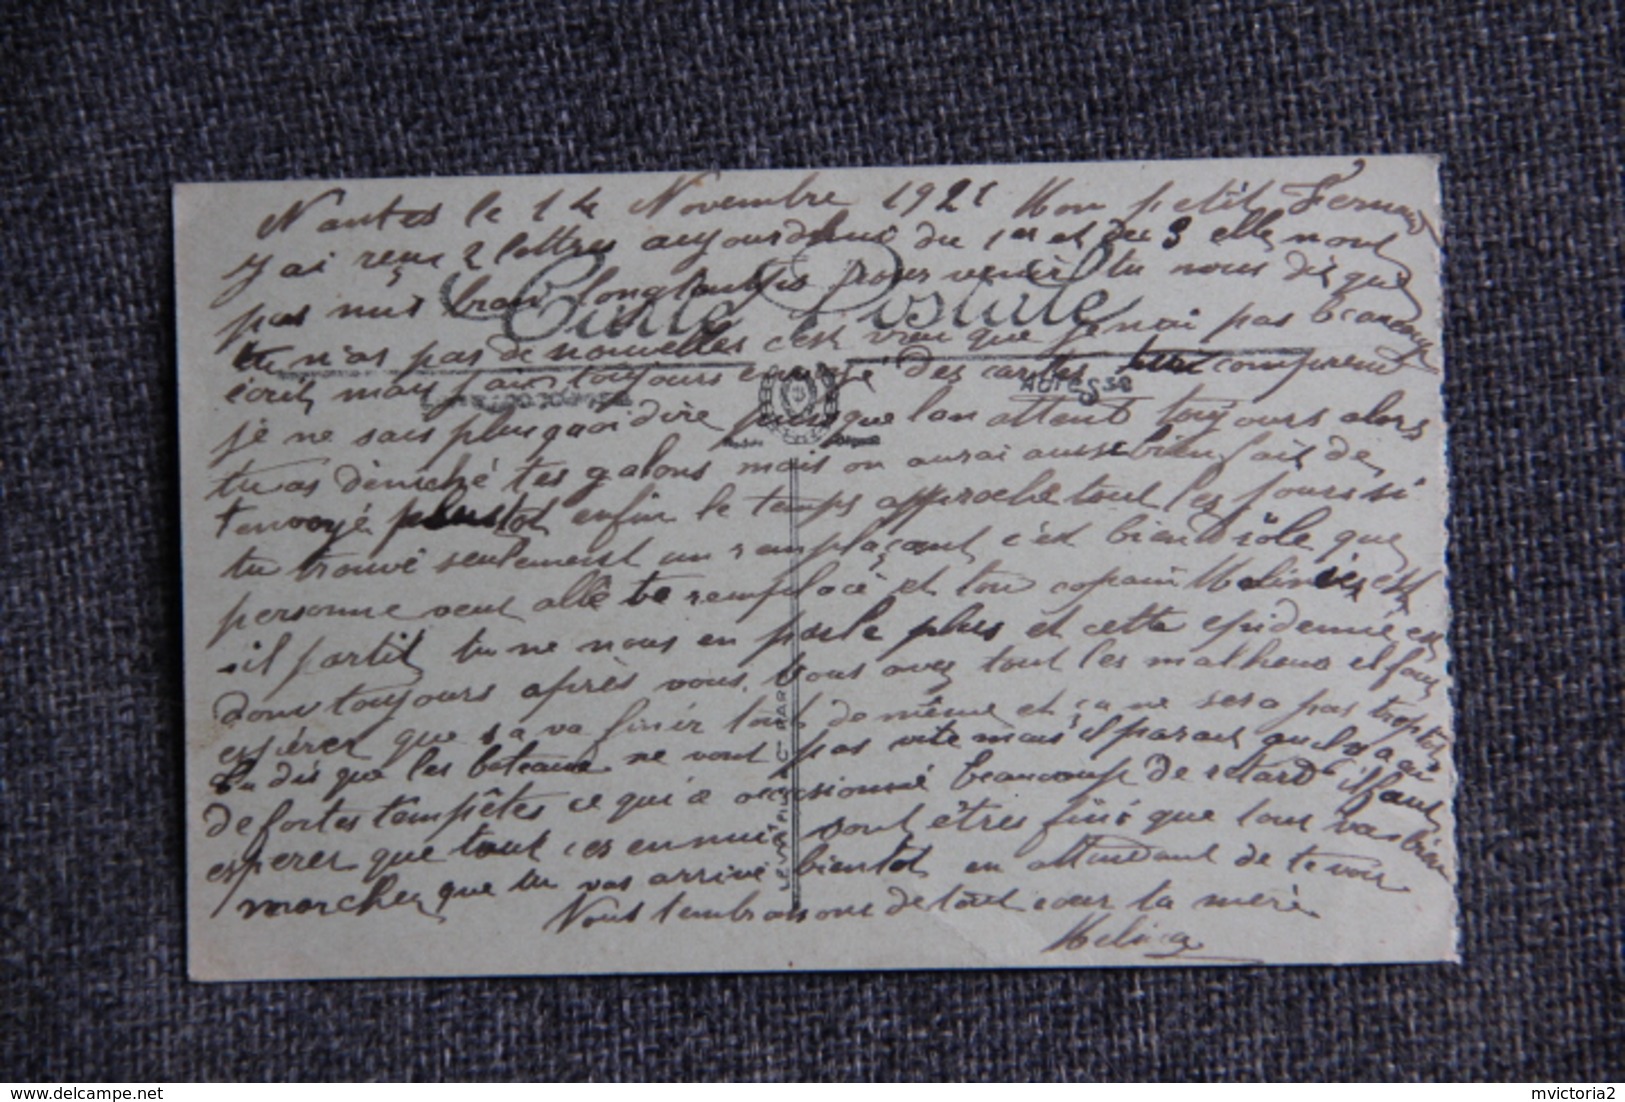 Nantes le 14 Novembre 1921 Mon petit Fernand
j'ai reçu 2 lettres aujourdhui du 1er et du 3 elle nont
pas mis bien longtemps pour venir tu nous dis que
tu n'as pas de nouvelles c'est vrai que je nai pas beaucoup
écrit mais j'ai toujours envoyé des cartes comprend
je ne sais plus quoi dire puisque l'an attend toujours alors
tu as déniché tes galons mais on aurai aussi bien fait de
t envoyé plustot enfin le temps approche tout les jours si
tu trouve seulement un remplaçant c'est bien drôle que
personne veut allé te remplacé et ton copain est
-il partit tu ne nous en parle plus et cette epidemie est
donc toujours après vous. Vous avez tout les malheurs il faut
espérer que sa va finir tout de même et ça ne sera pas trop tôt
tu dis que les bateaux ne vont pas vite mais il parait quil y a eu
de fortes tempêtes ce qui a occasionné beaucoup de retard il faut
esperer que tout ces ennuis vont êtres fini que tout vas bien
marcher que tu vas arrivé bientot en attendant de te voir
Nous tembrassons de tout cœur ta mère
Melina
Carte Postale
ADRESSE
LEVY FILS & Cie PARIS
delcampe.net
mvictoria2